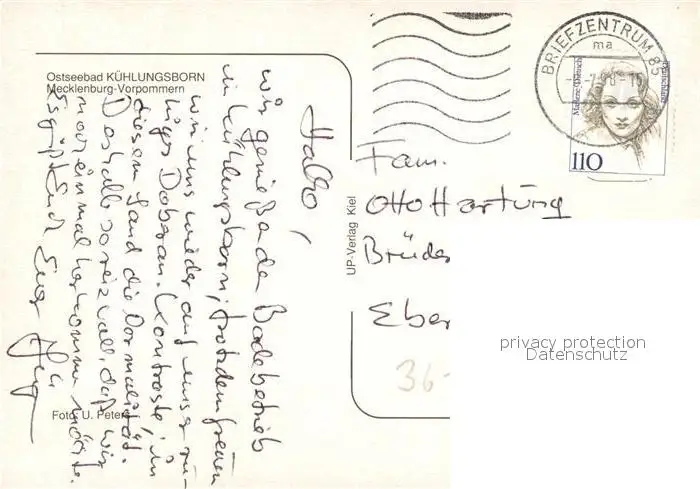 Ostseebad KÜHLUNGSBORN
Mecklenburg-Vorpommern
Hallo,
wir genießen den Badebetrieb
in Kühlungsborn, trotzdem freuen
wir uns wieder auf unser ru-
higes Doberan. Kontraste, in
diesem Land die Normalität.
Deshalb so reizvoll, daß wir
noch einmal herkommen möchte.
Es grüßt Euch Euer
Foto: U. Peters
UP-Verlag Kiel
BRIEFZENTRUM 85
ma
Marlene Dietrich
Deutschland
110
Fam.
Otto Hartung
Brüder
Eber
36-
privacy protection
Datenschutz